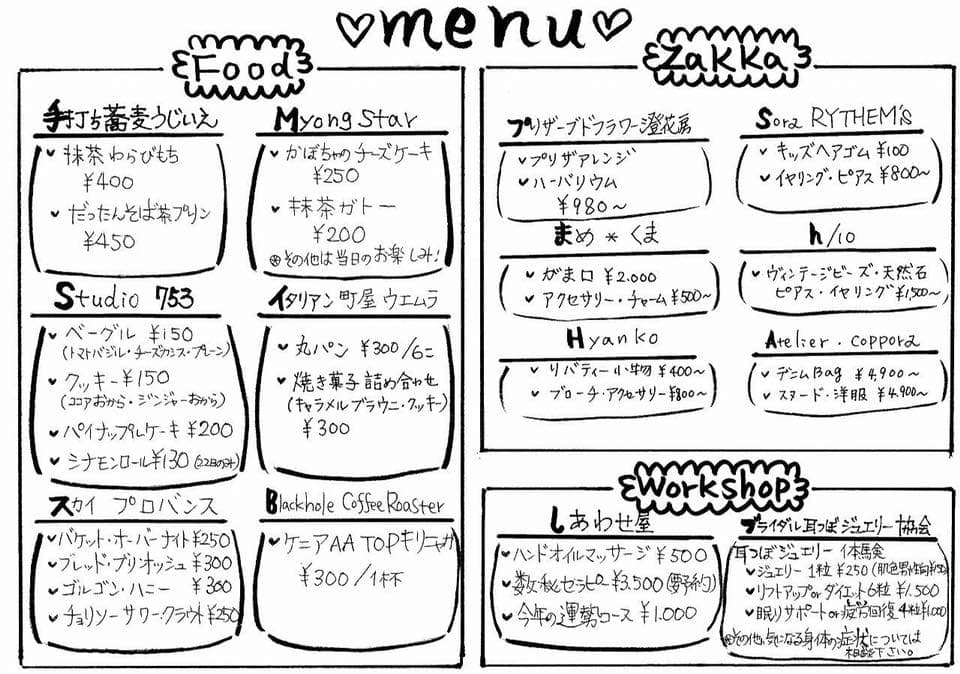 ♡menu♡
Food
手打ち蕎麦うじいえ
抹茶わらびもち
¥400
だったんそば茶プリン
¥450
Myong Star
かぼちゃのチーズケーキ
¥250
抹茶ガトー
¥200
※その他は当日のお楽しみ!
Studio 753
ベーグル ¥150
(トマトバジル・チーズクランス・プレーン)
クッキー ¥150
(ココアおから・ジンジャーおから)
パイナップルケーキ ¥200
シナモンロール ¥130 (22日のみ)
イタリアン町屋ウエムラ
丸パン ¥300/6コ
焼き菓子詰め合わせ
(キャラメルブラウニ・クッキー)
¥300
スカイ プロバンス
バケット・オーバーナイト ¥250
ブレッド・ブリオッシュ ¥300
ゴルゴン・ハニー ¥300
チョリソーサワークラウト ¥250
Blackhole Coffee Roaster
ケニアAA TOPキリニャガ
¥300/1杯
Zakka
プリザーブドフラワー澄花房
プリザアレンジ
ハーバリウム
¥980~
Sora RYTHEM's
キッズヘアゴム ¥100
イヤリング・ピアス ¥800~
まめ*くま
がま口 ¥2.000
アクセサリー・チャーム ¥500~
h/10
ヴィンテージビーズ・天然石
ピアス・イヤリング ¥1,500~
Hyanko
リバティー小物 ¥400~
ブローチ・アクセサリー ¥800~
Atelier.coppora
デニムBag ¥4,900~
スヌード・洋服 ¥4.900~
Workshop
しあわせ屋
ハンドオイルマッサージ ¥500
数秘セラピー ¥3.500 (要予約)
今年の運勢コース ¥1.000
ブライダル耳つぼジュエリー協会
耳つぼジュエリー 体験会
ジュエリー 1粒 ¥250
リフトアップorダイエット6粒 ¥1,500
眠りサポートor疲労回復 4粒 ¥1,000
※その他気になる身体の症状については
相談下さい。